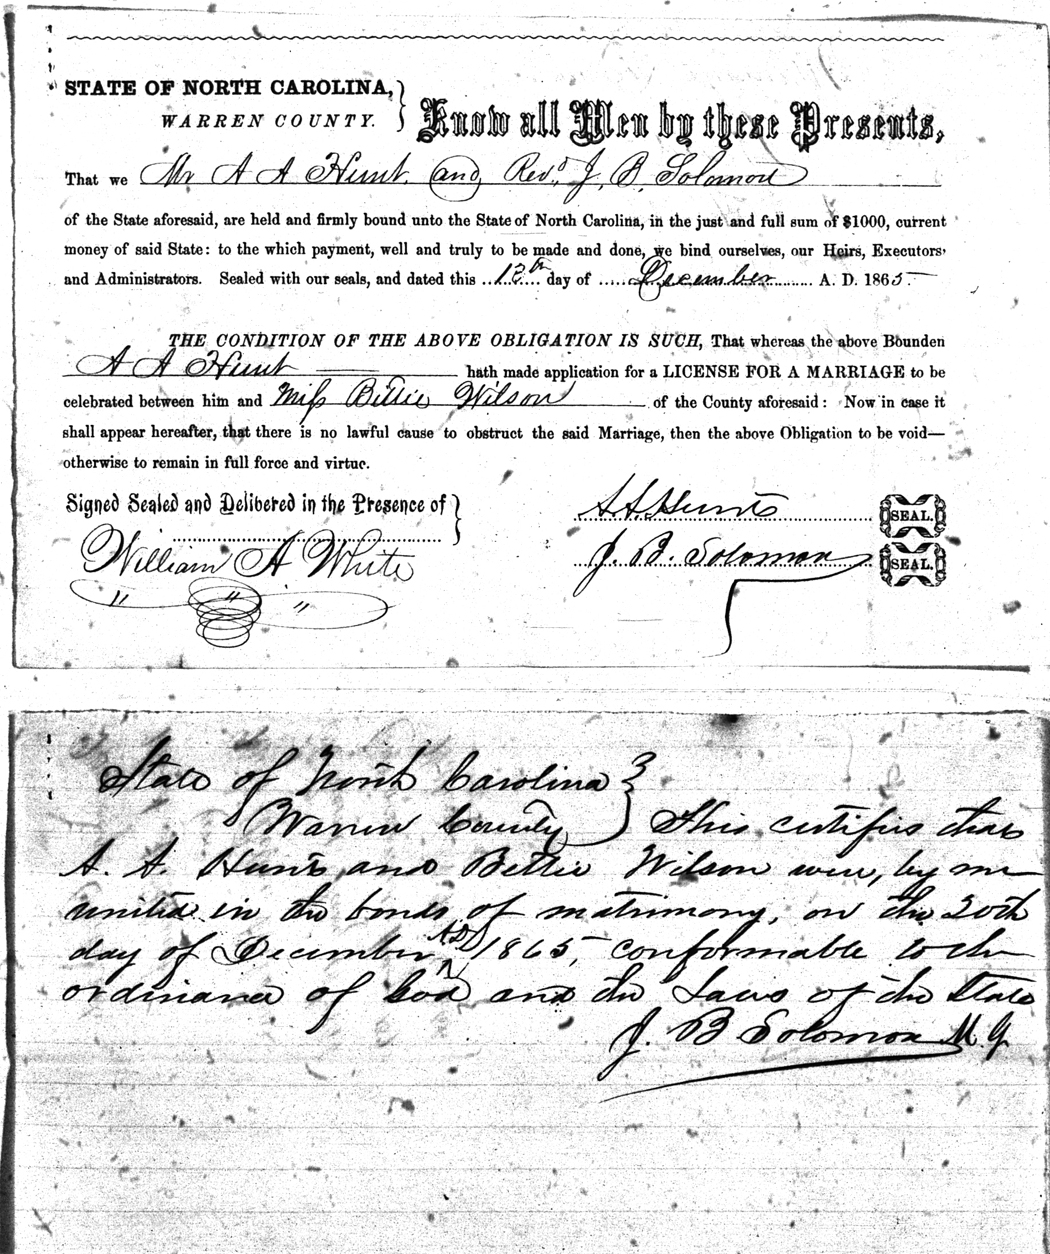 STATE OF NORTH CAROLINA, }
WARREN COUNTY.
Know all Men by these Presents,
That we Mr A A Hunt. and Revd. J. B. Solomon
of the State aforesaid, are held and firmly bound unto the State of North Carolina, in the just and full sum of $1000, current
money of said State: to the which payment, well and truly to be made and done, we bind ourselves, our Heirs, Executors
and Administrators. Sealed with our seals, and dated this day of December A. D. 1865
THE CONDITION OF THE ABOVE OBLIGATION IS SUCH, That whereas the above Bounden
A A Hunt hath made application for a LICENSE FOR A MARRIAGE to be
celebrated between him and Miss Bettie Wilson of the County aforesaid: Now in case it
shall appear hereafter, that there is no lawful cause to obstruct the said Marriage, then the above Obligation to be void—
otherwise to remain in full force and virtue.
Signed Sealed and Delibered in the Presence of }
A. A. Hunt SEAL.
William A White
J. B. Solomon SEAL.
" " "
State of North Carolina }
Warren County } This certifies that
A. A. Hunt and Bettie Wilson were, by me
united in the bonds of matrimony, on the 20th
day of December, AD 1865, conformable to the
ordinance of God and the Laws of the State
J. B Solomon M. G.